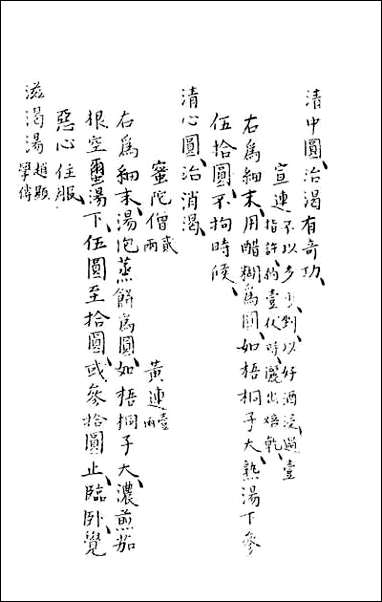 清中圓、治渴有奇功、
宣連不以多少、剉、以好酒浸過壹
指許、約壹伏時、灑出焙乾、
右為細末、用醋糊為圓、如梧桐子大、熟湯下參
伍拾圓、不拘時候、
清心圓、治消渴、
蜜陀僧貳兩　黃連壹兩
右為細末、湯泡蒸餅為圓、如梧桐子大、濃煎茄
根空蠒湯下、伍圓至拾圓、或參拾圓止、臨卧、覺
惡心住服、
滋渴湯趙顯學傳